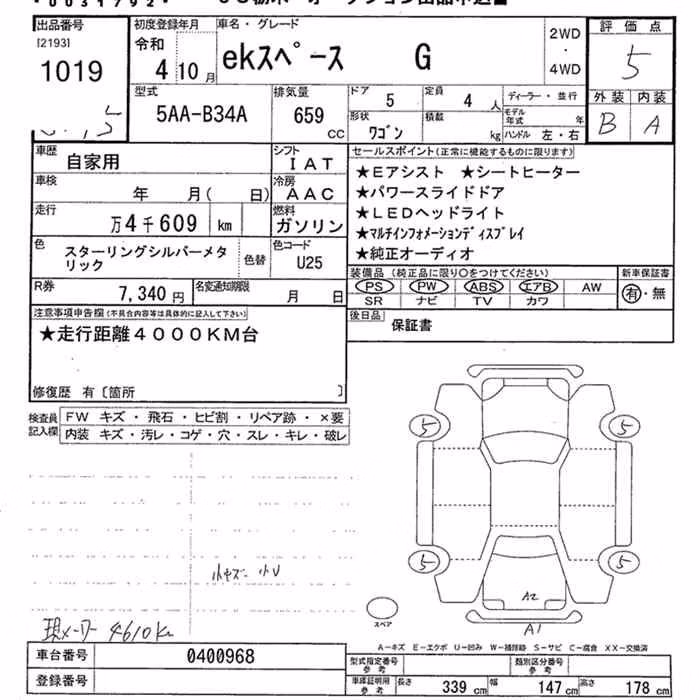 出品番号
[2193]
1019
初度登録年月
令和
4 10月
車名・グレード
ekスペース G
2WD
・
4WD
評価点
5
外装 内装
B A
型式
5AA-B34A
排気量
659
CC
ドア
5
定員
4 人
形状
ワゴン
積載
kg
ディーラー・並行
モデル年式 年
ハンドル 左・右
車歴
自家用
シフト
IAT
車検
年 月( 日)
冷房
AAC
走行
万4千609 km
燃料
ガソリン
色
スターリングシルバーメタ
リック
色替
色コード
U25
R券
7,340円
名変通知期限
月 日
セールスポイント(正常に機能するものに限ります)
★Eアシスト ★シートヒーター
★パワースライドドア
★LEDヘッドライト
★マルチインフォメーションディスプレイ
★純正オーディオ
装備品(純正品に限り○をつけてください)
PS PW ABS エアB AW
SR ナビ TV カワ
新車保証書
有・無
後日品
保証書
注意事項申告欄(不具合内容等は具体的に記入して下さい)
★走行距離4000KM台
修復歴 有〔箇所 〕
検査員
記入欄
FW キズ・飛石・ヒビ割・リペア跡・×要
内装 キズ・汚レ・コゲ・穴・スレ・キレ・破レ
5
5
5
5
小キズ 小U
A2
A1
スペア
現メーター 4610Km
A－キズ E－エクボ U－凹み W－補修跡 S－サビ C－腐食 XX－交換済
車台番号
0400968
登録番号
型式指定番号
参考
類別区分番号
参考
車庫証明用
参考
長さ 339 cm 幅 147 cm 高さ 178 cm